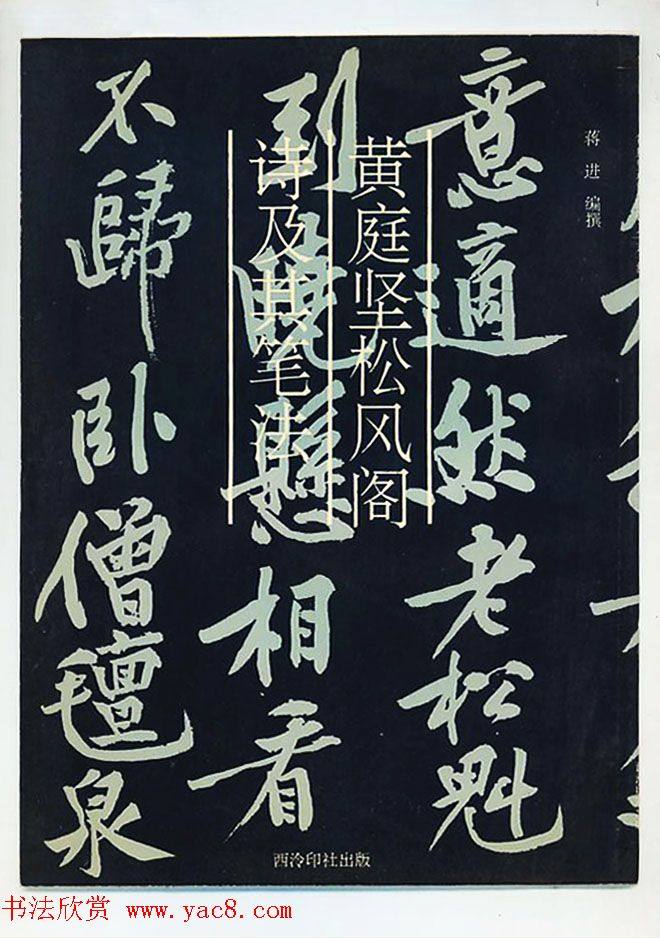 蒋进 编撰
黄庭坚松风阁
诗及其笔法
意适然老松魁
到晓悬相看
不归卧僧氊泉
西泠印社出版
书法欣赏 www.yac8.com